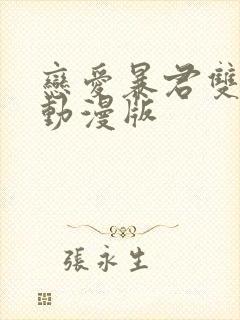 戀愛暴君雙
動漫版
張永生